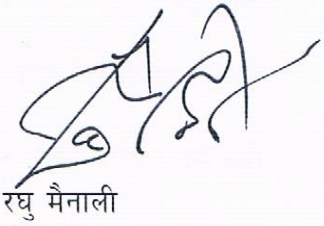 रघु मैनाली